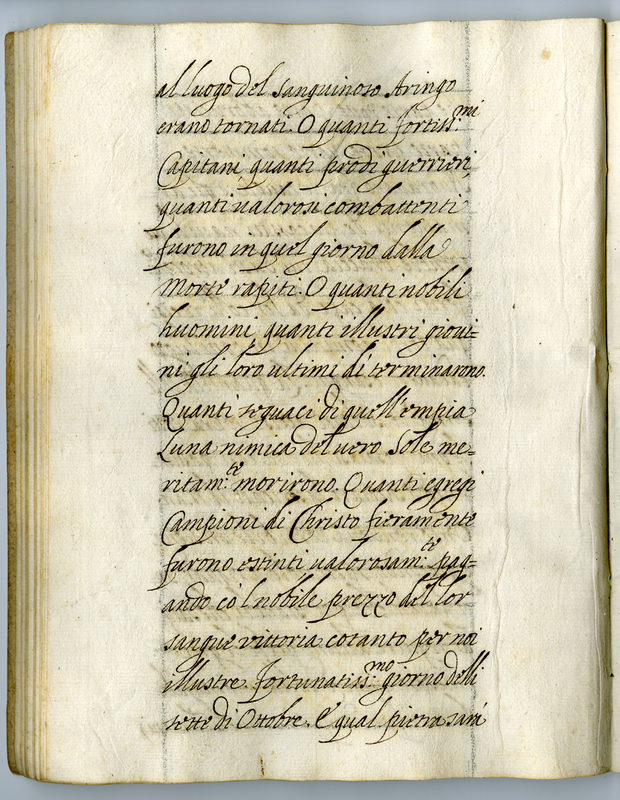 al luogo del sanguinoso Aringo
erano tornati. O quanti fortiss:mi
Capitani, quanti prodi guerrieri,
quanti ualorosi combattenti
furono in quel giorno dalla
Morte rapiti. O quanti nobili
huomini, quanti illustri gioui=
ni gli loro ultimi dì terminarono.
Quanti seguaci di quell'empia
Luna nimica del uero Sole me=
ritam:te morirono. Quanti egregi
Campioni di Christo fieramente
furono estinti ualorosam:te pag=
ando co'l nobile prezzo del lor
sangue vittoria cotanto per noi
illustre. Fortunatiss:mo giorno delli
sette di Ottobre. E qual pietra sarà